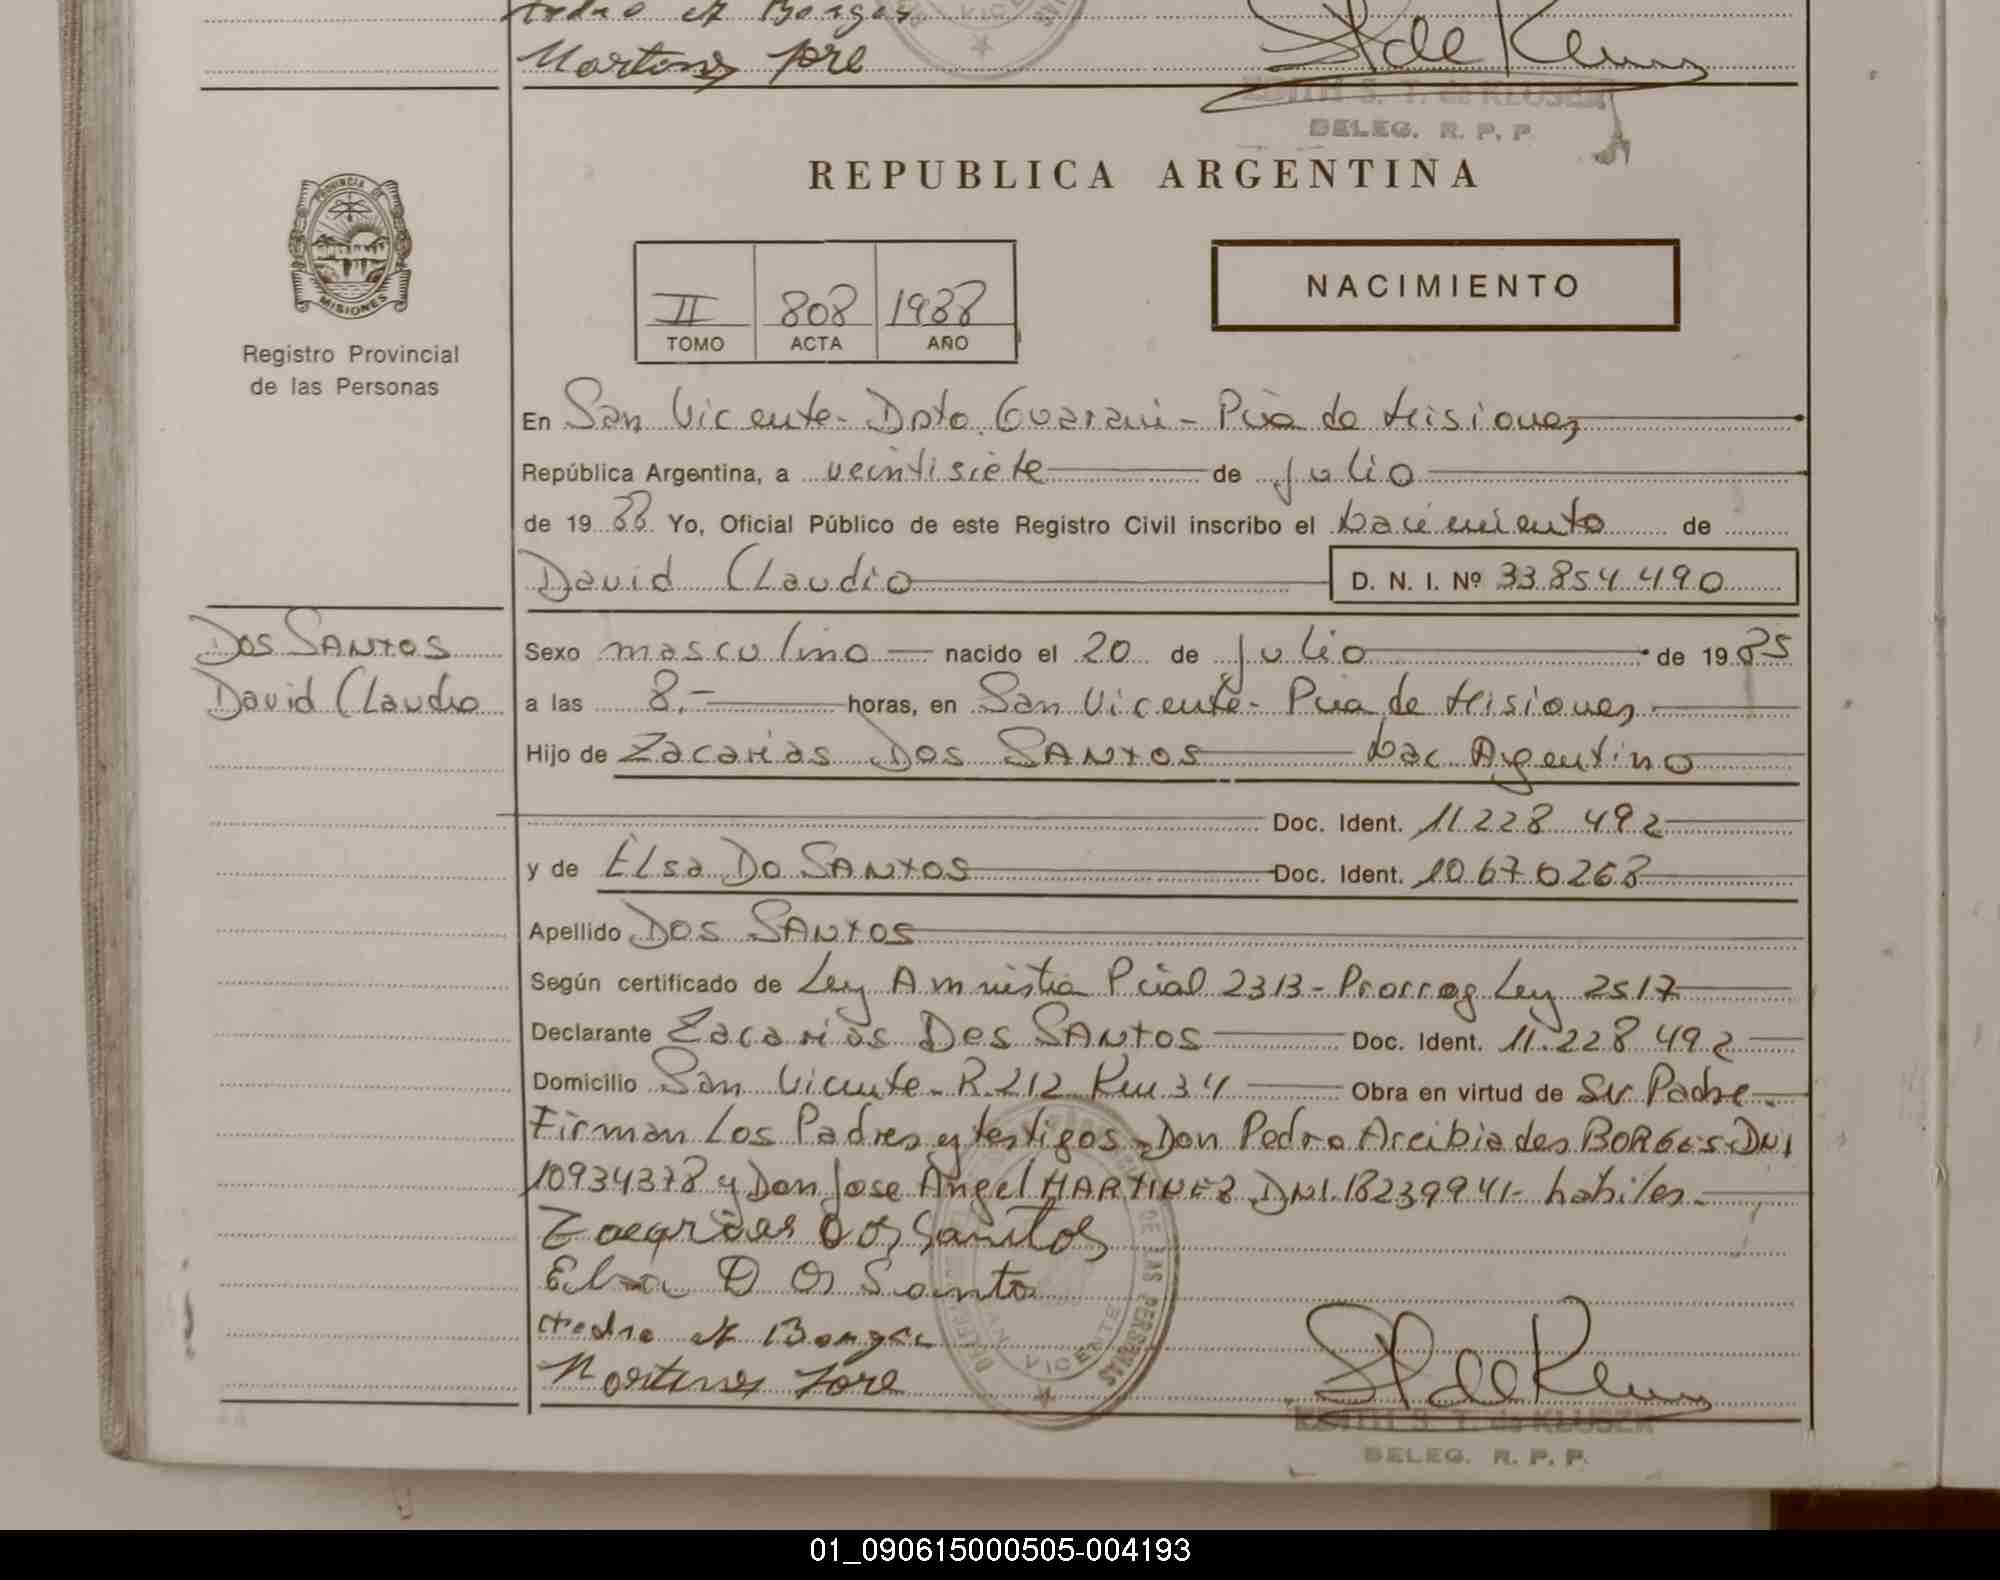 Pedro A Borges
Martinez Jose
EDITH S. T. de KLUSER
DELEG. R. P. P.
REPUBLICA ARGENTINA
PROVINCIA DE
MISIONES
Registro Provincial
de las Personas
II 808 1988
TOMO ACTA AÑO
NACIMIENTO
En San Vicente - Dpto. Guarani - Pcia de Misiones
República Argentina, a veintisiete de Julio
de 19 88 Yo, Oficial Público de este Registro Civil inscribo el nacimiento de
David Claudio D. N. I. Nº 33.854.490
Dos SANTOS
David Claudio
Sexo masculino nacido el 20 de Julio de 19 85
a las 8.- horas, en San Vicente - Pcia de Misiones
Hijo de Zacarias Dos SANTOS Nac. Argentino
Doc. Ident. 11.228 492
y de Elsa Do SANTOS Doc. Ident. 10.670.268
Apellido Dos SANTOS
Según certificado de Ley Amnistia Pcial 2313 - Prorrog Ley 2517
Declarante Zacarias Dos SANTOS Doc. Ident. 11.228 492
Domicilio San Vicente - R. 212 Km 34 Obra en virtud de Su Padre.
Firman Los Padres y testigos - Don Pedro Arcibiades BORGES - DNI
10934378 y Don Jose Angel MARTINEZ DNI. 18239941 - habiles.
Zacarias Dos Santos
Elsa D Os Santo
Pedro A Borges
Martinez Jose
DE LAS PERSONAS
VICENTE
EDITH S. T. de KLUSER
DELEG. R. P. P.
01_090615000505-004193